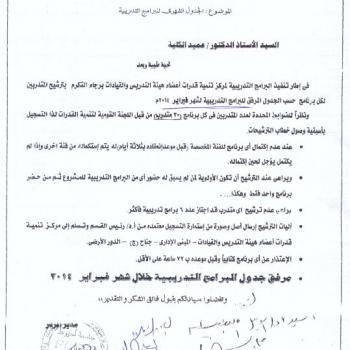 الموضوع : الجدول الشهري للبرامج التدريبية
السيد الأستاذ الدكتور / عميد الكلية
تحية طيبة وبعد
فى إطار تنفيذ البرامج التدريبية لمركز تنمية قدرات أعضاء هيئة التدريس والقيادات برجاء التكرم بترشيح المتدربين
لكل برنامج حسب الجدول المرفق للبرامج التدريبية لشهر فبراير ٢٠١٤م
ونظراً للضوابط المحددة لعدد المتدربين فى كل برنامج (٣٠ متدرب) من قبل اللجنة القومية لتنمية القدرات لذا التسجيل
بأسبقية وصول خطاب الترشيحات .
عدم إكتمال أى برنامج للفئة المخصصة (قبل موعد إنعقاده بثلاثة أيام) يتم إستكماله من فئة أخرى وإذا لم
يكتمل يؤجل لحين إكتماله .
ويراعى عند الترشيح أن تكون الأولوية لمن لم يسبق له حضور أى من البرامج التدريبية للمشروع ثم من حضر
برنامج واحد فقط وهكذا...
عدم ترشيح أى متدرب قد اجتاز عدد ٦ برامج تدريبية فأكثر
آليات الترشيح إرسال أصل وصورة من إستمارة التسجيل معتمدة من أ.د/ رئيس القسم وتسلم إلى مركز تنمية
قدرات أعضاء هيئة التدريس والقيادات – المبنى الإدارى – جناح (ج) – الدور الأرضى.
الإعتذار عن أى برنامج كتابياً وقبل موعده ب ٧٢ ساعة على الأقل .
مرفق جدول البرامج التدريبية خلال شهر فبراير ٢٠١٤
وتفضلوا سيادتكم بقبول فائق الشكر والتقدير ،،